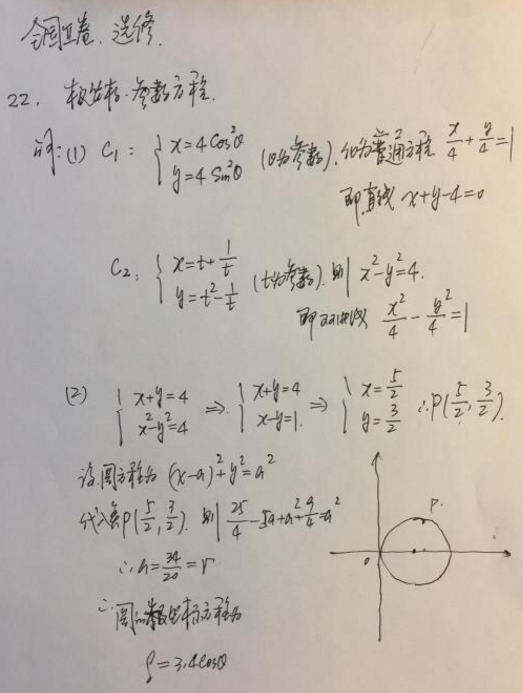 全国II卷.选修.
22. 极坐标·参数方程.
解:(1) C₁: { x=4cos²θ
y=4sin²θ (θ为参数),化为普通方程 x/4+y/4=1
即直线 x+y-4=0
C₂: { x=t+1/t
y=t²-1/t (t为参数). 则 x²-y²=4.
即双曲线 x²/4-y²/4=1
(2) { x+y=4
x²-y²=4 ⇒ { x+y=4
x-y=1. ⇒ { x=5/2
y=3/2 ∴P(5/2,3/2).
设圆方程为 (x-a)²+y²=a²
代入点P(5/2,3/2). 则 25/4-5a+a²+9/4=a²
∴a=34/20=r
∴圆的极坐标方程为
ρ=3.4cosθ
P.
0